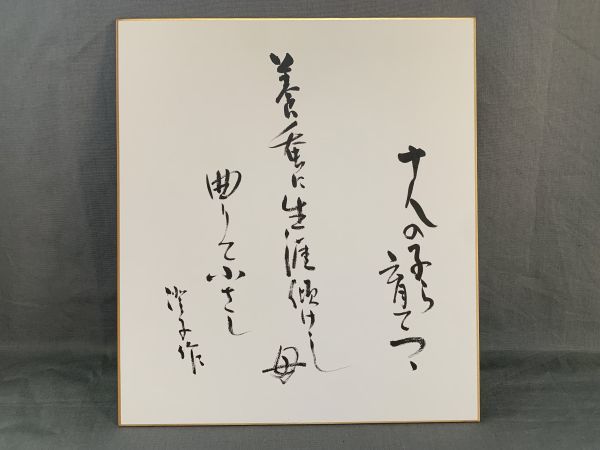 十人の子ら育てつゝ
養蚕に生涯傾けし母
曲りて小さし
澄子作